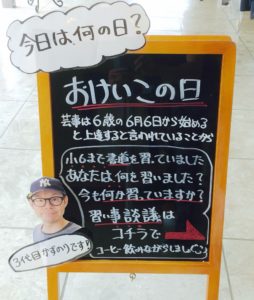 今日は何の日?
おけいこの日
芸事は6歳の6月6日から始める
と上達すると言われていることから
小6まで書道を習っていました
あなたは何を習いました?
今も何か習っていますか?
習い事談議は
コチラで
コーヒー飲みながらしましょ
3代目かずのりです!